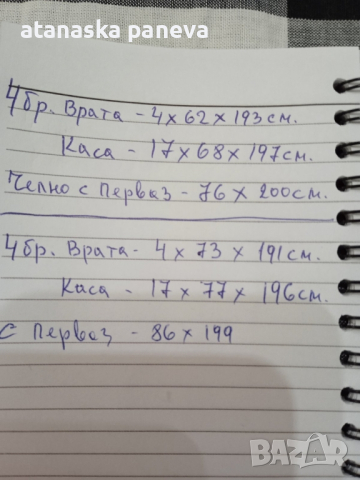 atanaska paneva
4бр. Врата - 4 x 62 x 193см.
Каса - 17 x 68 x 197см.
Челно с Перваз - 76 x 200см.
4бр. Врата - 4 x 73 x 191см.
Каса - 17 x 77 x 196см.
С Перваз - 86 x 199
BAZAR